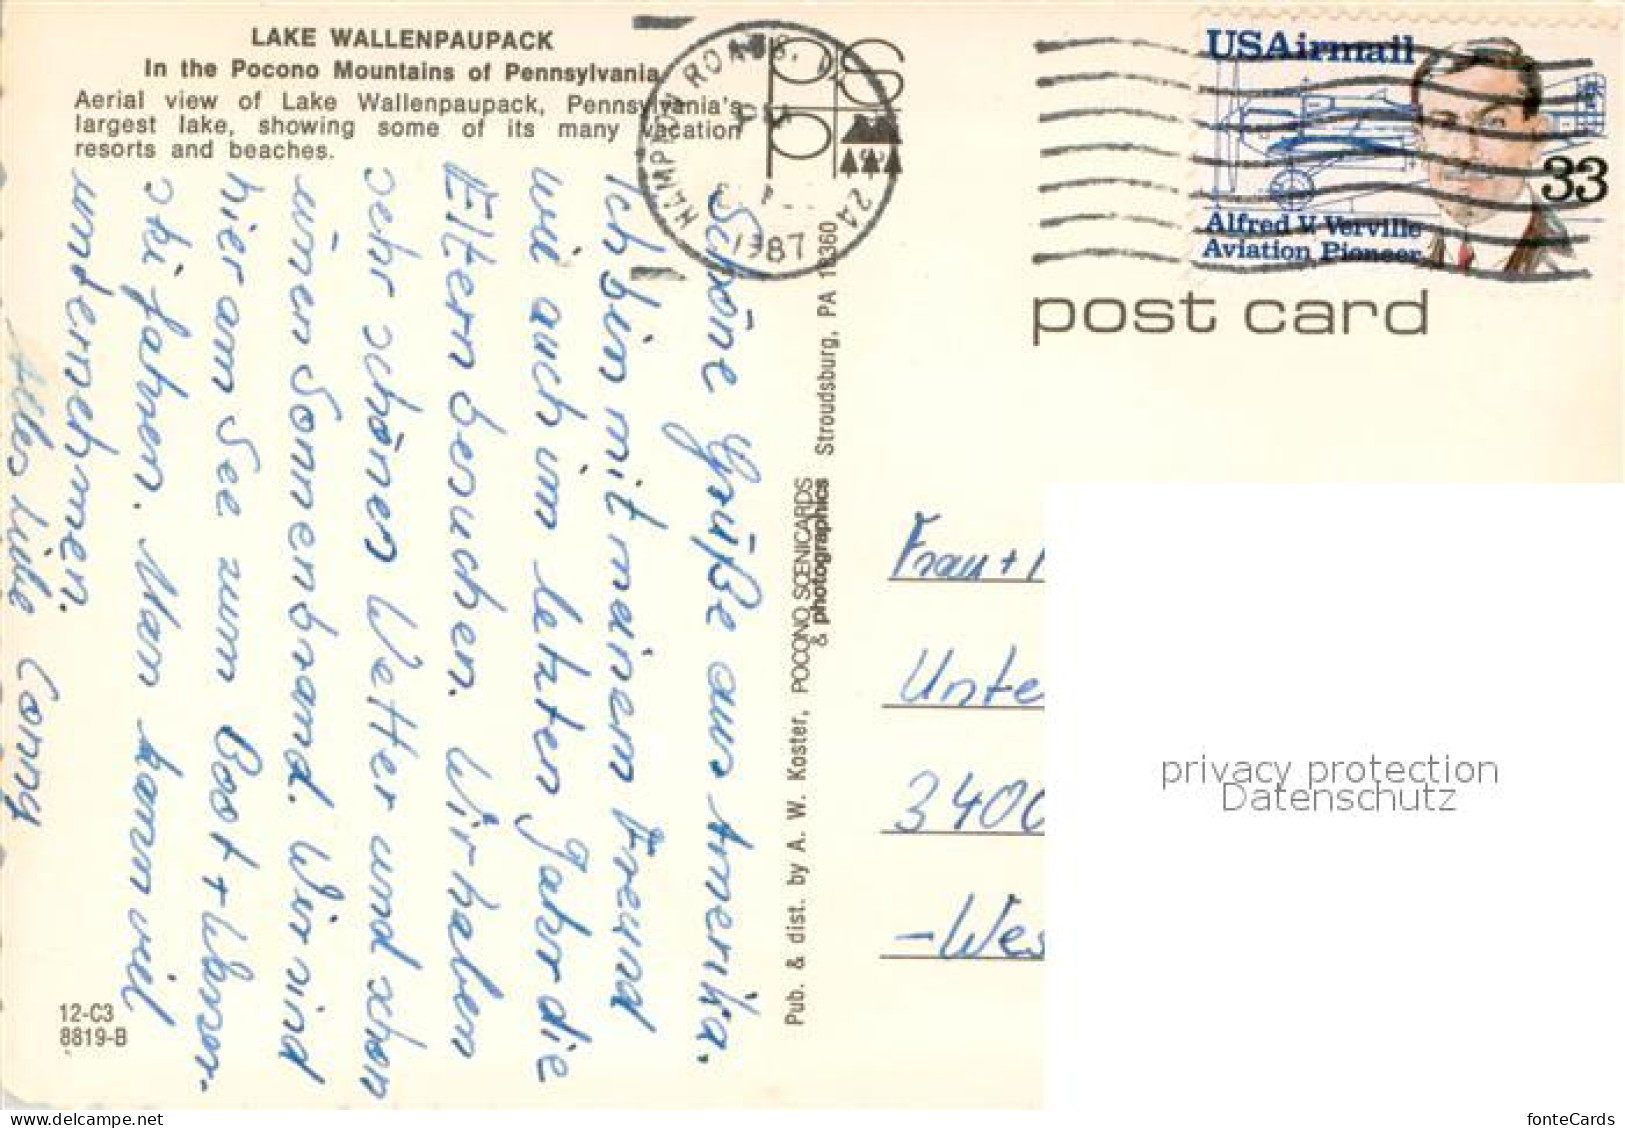 LAKE WALLENPAUPACK
In the Pocono Mountains of Pennsylvania
Aerial view of Lake Wallenpaupack, Pennsylvania's
largest lake, showing some of its many vacation
resorts and beaches.
HAMPTON ROADS, 
1987
USAirmail
33
Alfred V. Verville
Aviation Pioneer
post card
Schöne Grüße aus Amerika.
Ich bin mit meinem Freund
wie auch im letzten Jahr die
Eltern besuchen. Wir haben
sehr schönen Wetter und schon
einen Sonnenbrand. Wir sind
hier am See zum Boot + Wasser-
ski fahren. Man kann viel
unternehmen.
Alles Liebe Conny
Pub. & dist. by A. W. Koster, POCONO SCENICARDS
& photographics Stroudsburg, PA 18360
Frau +
Unte
3400
-Wes
12-C3
8819-B
privacy protection
Datenschutz
fonteCards